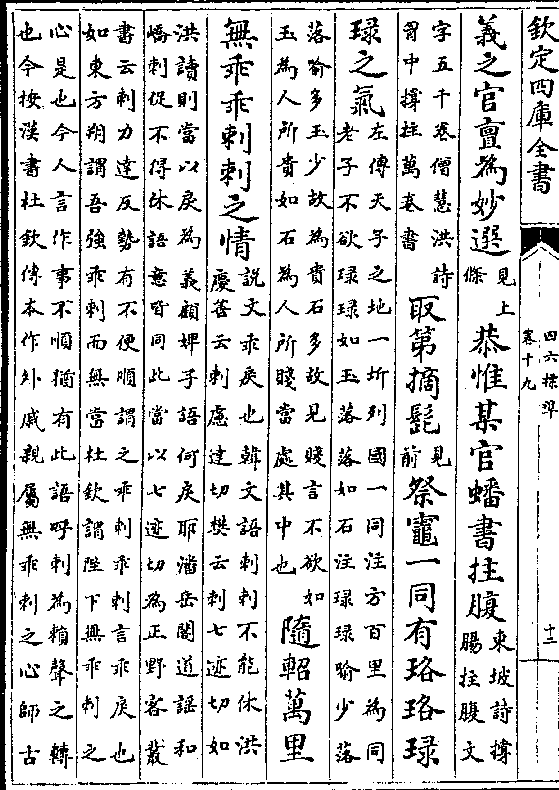 欽定四庫全書
四六標準
卷十九
十三
義之官亶為妙選
見上
條
恭惟某官蟠書拄腹
東坡詩撐
腸拄腹文
字五千卷僧慧洪詩
胷中撐拄萬卷書
取第摘髭
見
前
祭竈一同有珞珞琭
琭之氣
左傳天子之地一圻列國一同注方百里為同
老子不欲琭琭如玉落落如石注琭琭喻少落
落喻多玉少故為貴石多故見賤言不欲如
玉為人所貴如石為人所賤當處其中也
隨軺萬里
無乖乖剌剌之情
說文乖戾也韓文語剌剌不能休洪
慶善云剌慮達切樊云剌七迹切如
洪讀則當以戾為義顧婢子語何戾耶潘岳閣道謡和
嶠刺促不得休語意皆同此當以七迹切為正野客叢
書云剌力達反勢有不便順謂之乖剌乖剌言乖戾也
如東方朔謂吾強乖剌而無當杜欽謂陛下無乖剌之
心是也今人言作事不順猶有此語呼剌為賴聲之轉
也今按漢書杜欽傳本作外戚親屬無乖剌之心師古